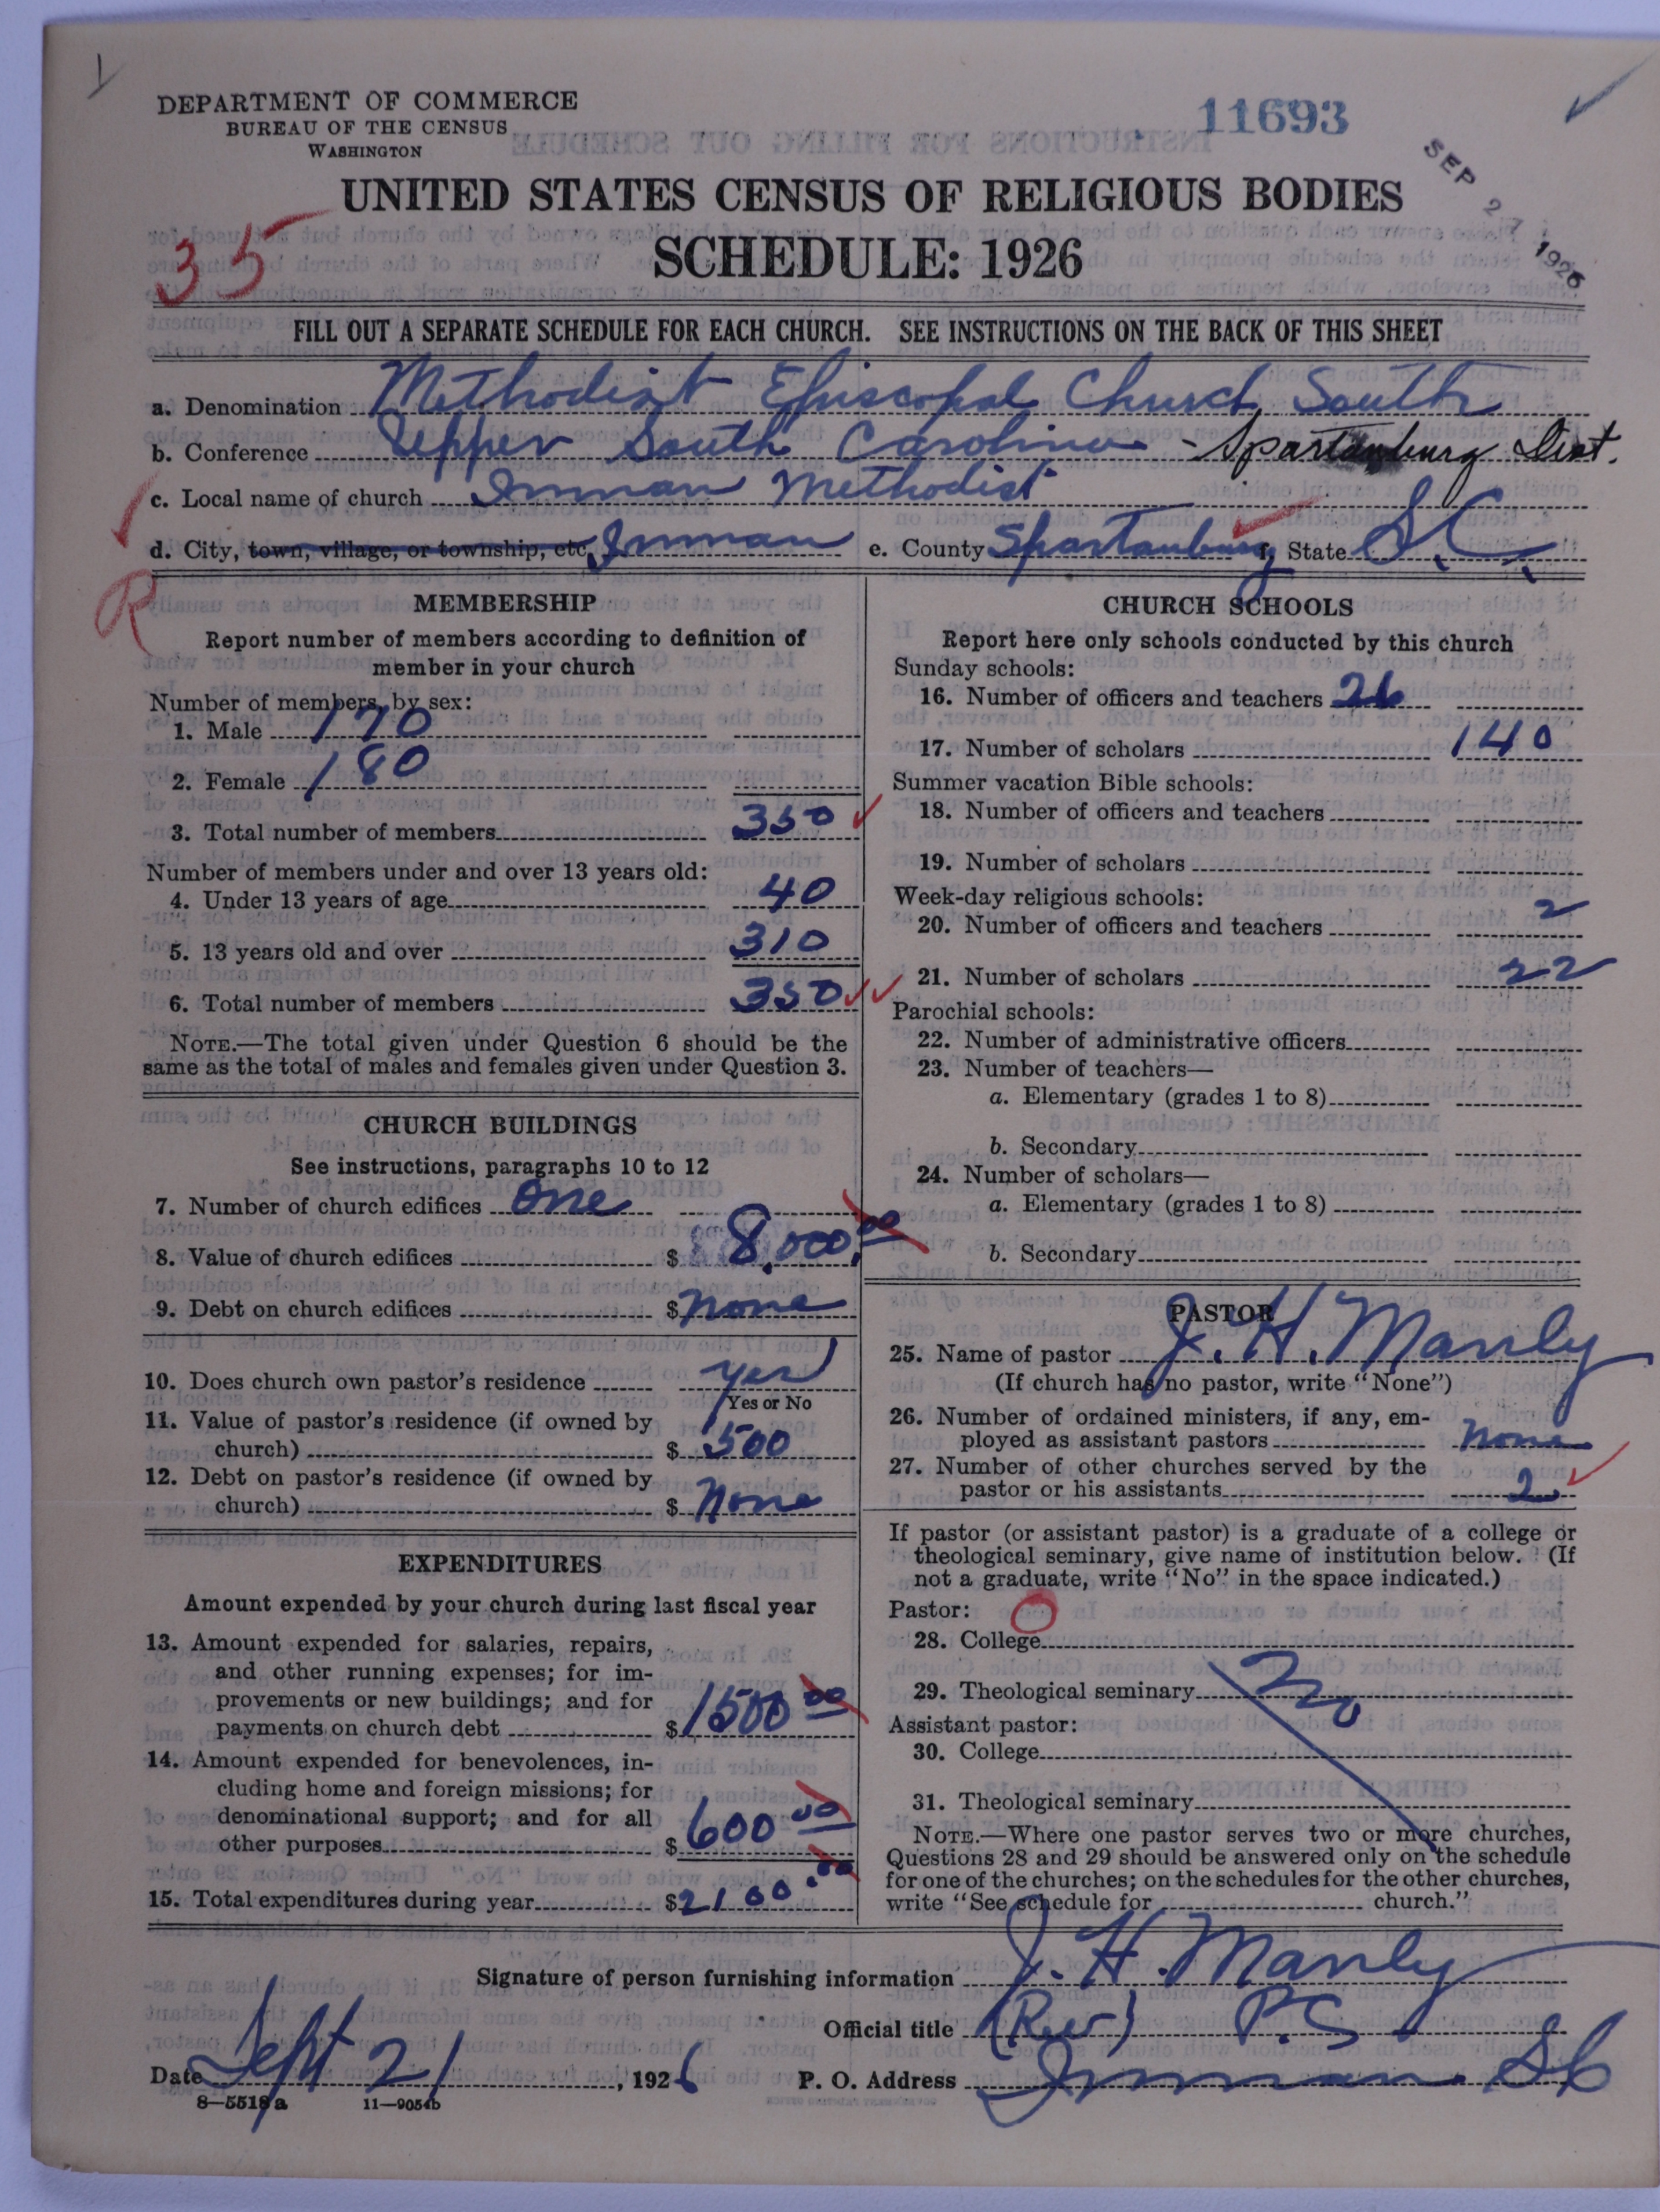 DEPARTMENT OF COMMERCE
BUREAU OF THE CENSUS
WASHINGTON
11693
SEP 27 1926
UNITED STATES CENSUS OF RELIGIOUS BODIES
35
SCHEDULE: 1926
FILL OUT A SEPARATE SCHEDULE FOR EACH CHURCH. SEE INSTRUCTIONS ON THE BACK OF THIS SHEET
a. Denomination Methodist Episcopal Church, South
b. Conference Upper South Carolina - Spartanburg Dist.
c. Local name of church Inman Methodist
d. City, town, village, or township, etc. Inman e. County Spartanburg f. State S.C.
R
MEMBERSHIP
Report number of members according to definition of
member in your church
Number of members, by sex:
1. Male 170
2. Female 180
3. Total number of members 350
Number of members under and over 13 years old:
4. Under 13 years of age 40
5. 13 years old and over 310
6. Total number of members 350
NOTE.—The total given under Question 6 should be the
same as the total of males and females given under Question 3.
CHURCH BUILDINGS
See instructions, paragraphs 10 to 12
7. Number of church edifices one
8. Value of church edifices $ 8,000.00
9. Debt on church edifices $ none
10. Does church own pastor's residence yes
Yes or No
11. Value of pastor's residence (if owned by
church) $ 1500
12. Debt on pastor's residence (if owned by
church) $ None
EXPENDITURES
Amount expended by your church during last fiscal year
13. Amount expended for salaries, repairs,
and other running expenses; for im-
provements or new buildings; and for
payments on church debt $ 1500 00
14. Amount expended for benevolences, in-
cluding home and foreign missions; for
denominational support; and for all
other purposes $ 600 00
15. Total expenditures during year $ 2100.00
CHURCH SCHOOLS
Report here only schools conducted by this church
Sunday schools:
16. Number of officers and teachers 26
17. Number of scholars 140
Summer vacation Bible schools:
18. Number of officers and teachers
19. Number of scholars
Week-day religious schools:
20. Number of officers and teachers 2
21. Number of scholars 22
Parochial schools:
22. Number of administrative officers
23. Number of teachers—
a. Elementary (grades 1 to 8)
b. Secondary
24. Number of scholars—
a. Elementary (grades 1 to 8)
b. Secondary
PASTOR
25. Name of pastor J. H. Manly
(If church has no pastor, write "None")
26. Number of ordained ministers, if any, em-
ployed as assistant pastors none
27. Number of other churches served by the
pastor or his assistants 2
If pastor (or assistant pastor) is a graduate of a college or
theological seminary, give name of institution below. (If
not a graduate, write "No" in the space indicated.)
Pastor:
28. College
29. Theological seminary No
Assistant pastor:
30. College
31. Theological seminary
NOTE.—Where one pastor serves two or more churches,
Questions 28 and 29 should be answered only on the schedule
for one of the churches; on the schedules for the other churches,
write "See schedule for church."
Signature of person furnishing information J. H. Manly
Official title (Rev) P.S
Date Sept 21, 1926 P. O. Address Inman SC
8—5518a 11—9054b